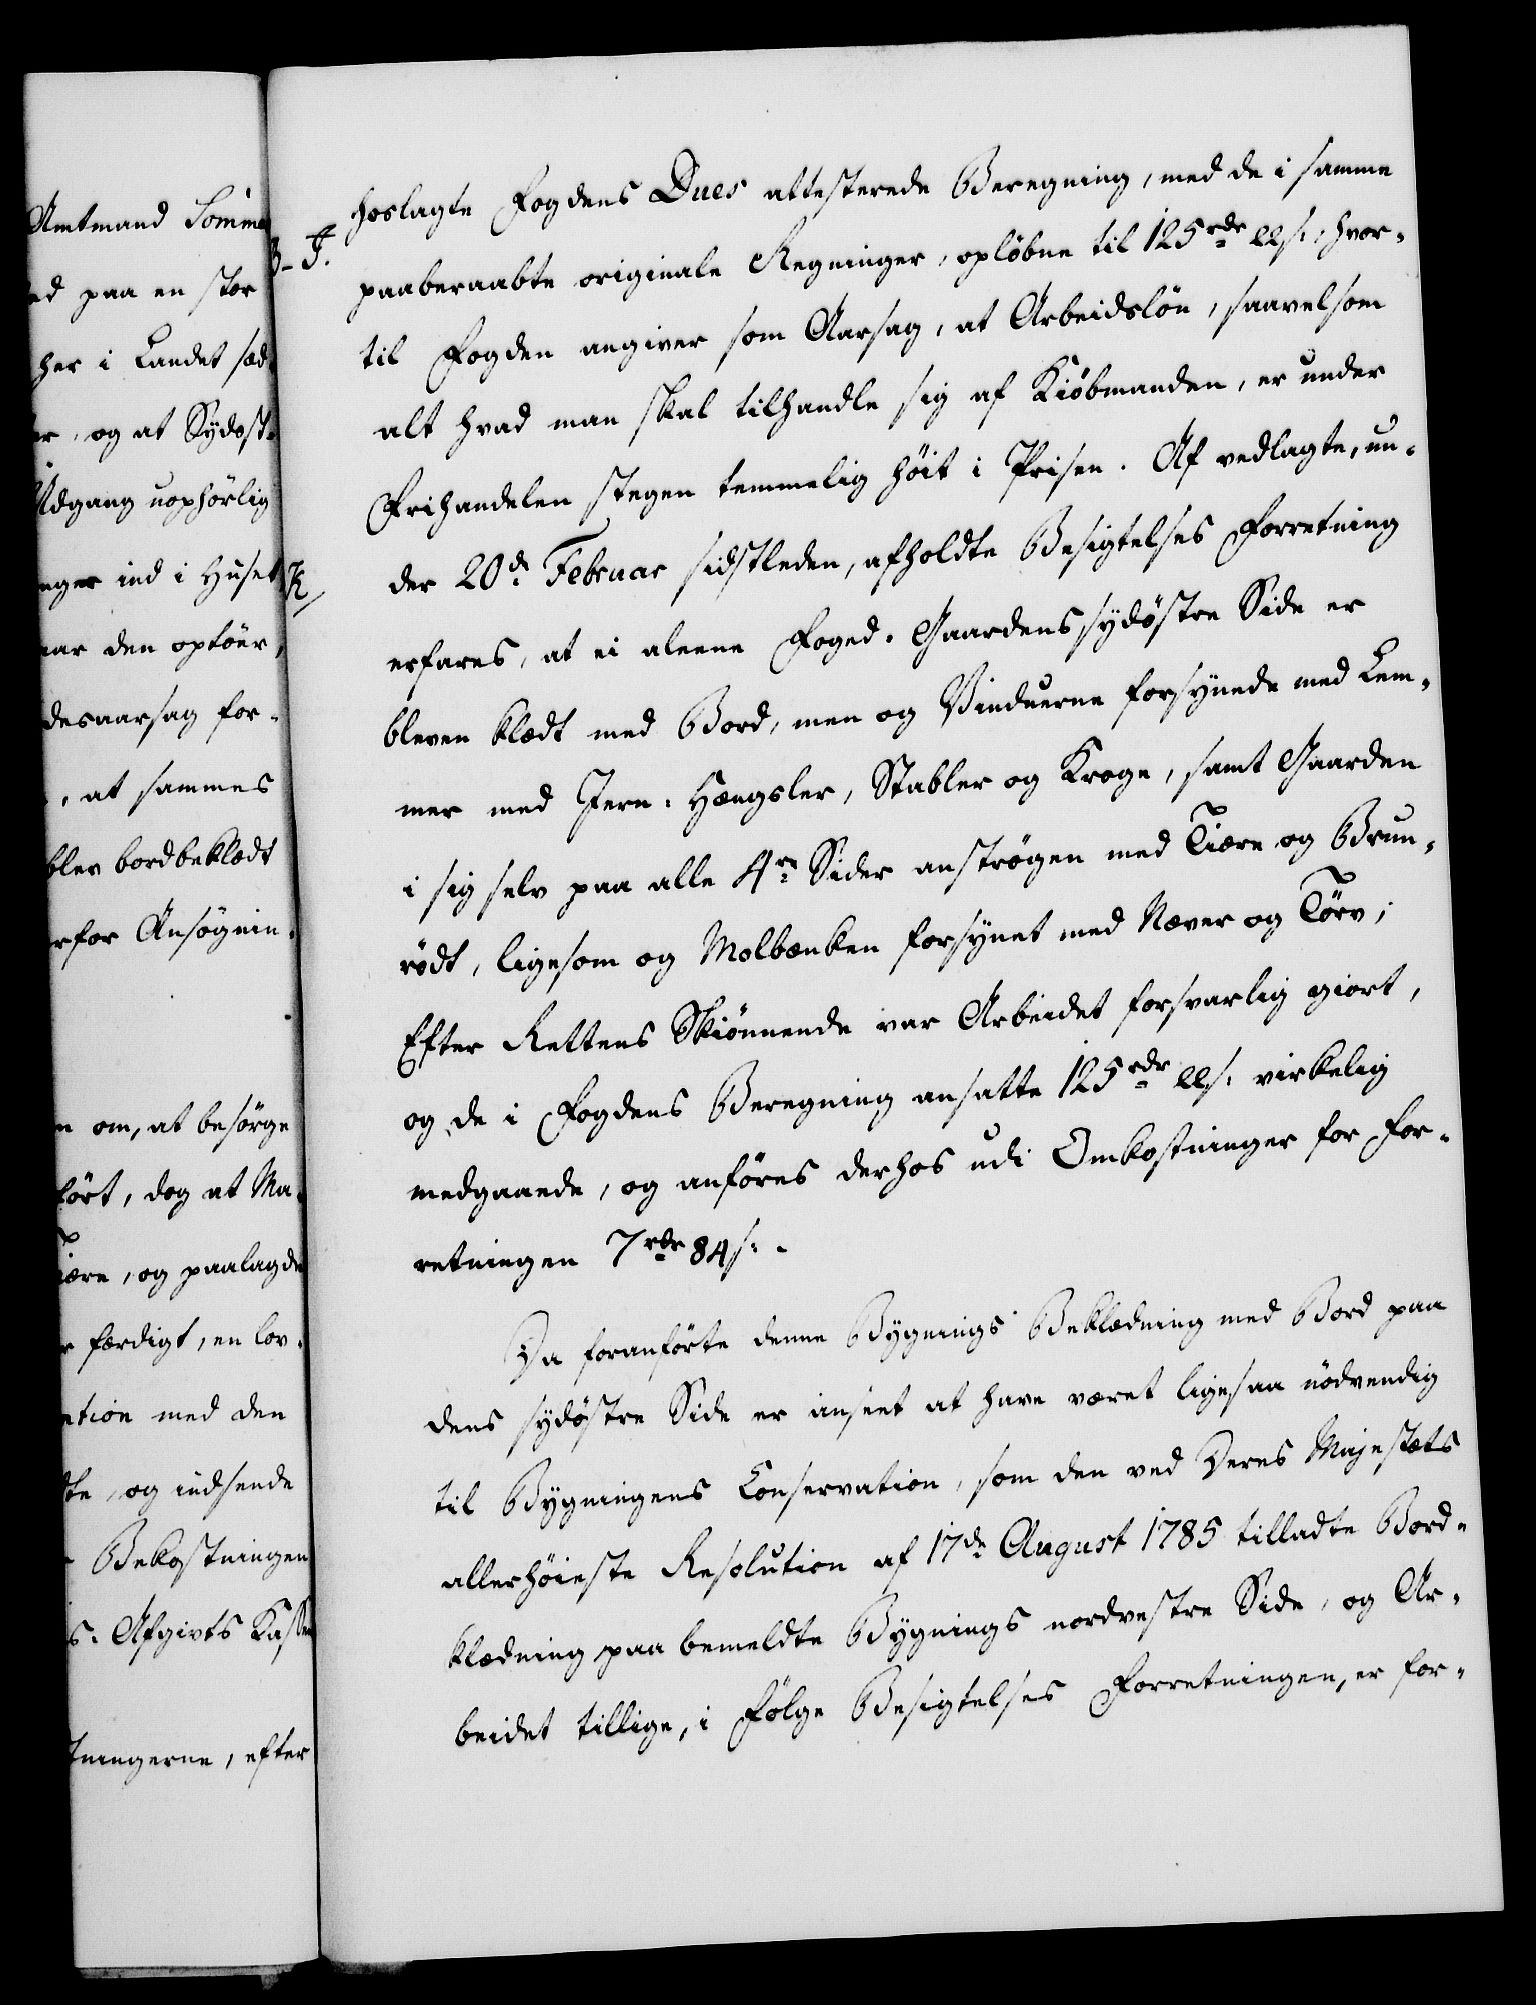 Amtmand Somme
ed paa en stor
her i Landet sæd
er, og at Sydost-
Udgang uophörlig
nger ind i Huset
aar den optöer,
desaarsag for-
, at sammes
blev bordbeklædt
rfor Ansögnin-
n om, at besörge
fört, dog at Ma-
Tiære, og paalagde
r færdigt, en lov-
ation med den
dte, og indsende
Bekostningen
s. Afgivts Kasse
tningerne, efter
B-J.
K
hoslagte Fogdens Dues attesterede Beregning, med de i samme
paaberaabte originale Regninger, oplöbne til 125 rdr 22 s.; hvor-
til Fogden angiver som Aarsag, at Arbeidslön, saavelsom
alt hvad man skal tilhandle sig af Kiöbmanden, er under
Frihandelen stegen temmelig höit i Prisen. Af vedlagte, un-
der 20de Februar sidstleden, afholdte Besigtelses Forretning
erfares, at ei aleene Foged-Gaardens sydöstre Side er
bleven klædt med Bord, men og Vinduerne forsynede med Lem-
mer med Jern-Hængsler, Stabler og Kroge, samt Gaarden
i sig selv paa alle 4re Sider anströgen med Tiære og Brun-
rödt, ligesom og Molbænken forsynet med Næver og Törv;
Efter Rettens Skiönnende var Arbeidet forsvarlig giort,
og de i Fogdens Beregning ansatte 125 rdr 22 s. virkelig
medgaaede, og anföres derhos udi Omkostninger for For-
retningen 7 rdr 84 s.
Da foranförte denne Bygnings Beklædning med Bord paa
dens sydöstre Side er anseet at have været ligesaa nödvendig
til Bygningens Conservation, som den ved Deres Majestæts
allerhöieste Resolution af 17de August 1785 tilladte Bord-
klædning paa bemeldte Bygnings nordvestre Side, og Ar-
beidet tillige, i Fölge Besigtelses Forretningen, er for-